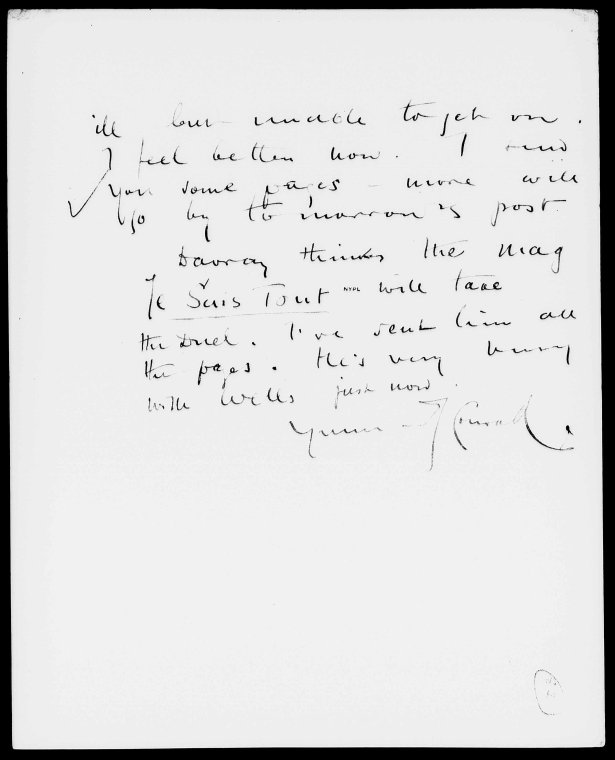 ill but unable to get on.
I feel better now. I send
you some pages – more will
go by to-morrow's post.
Davray thinks the mag
Je Sais Tout NYPL will take
the Duel. I've sent him all
the pages. He's very busy
with Wells just now.
Yours J Conrad.